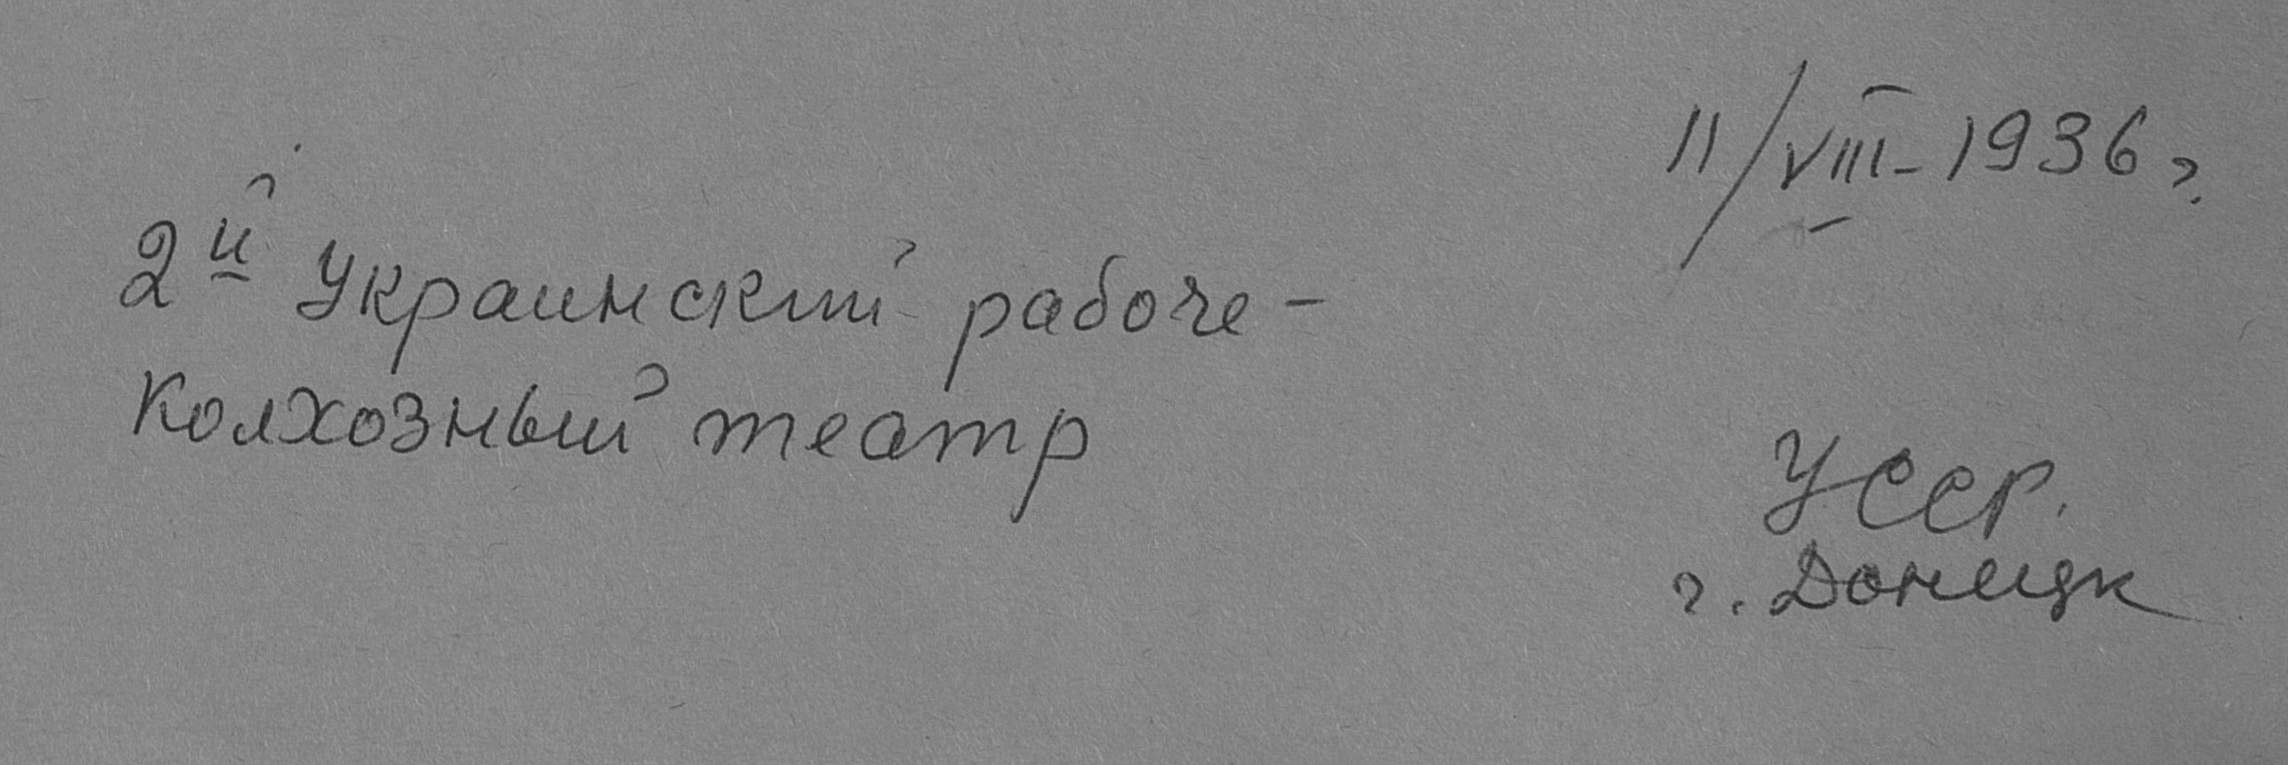 11/VIII-1936 г.
2й Украинский рабоче-
колхозный театр
УССР.
г. Донецк